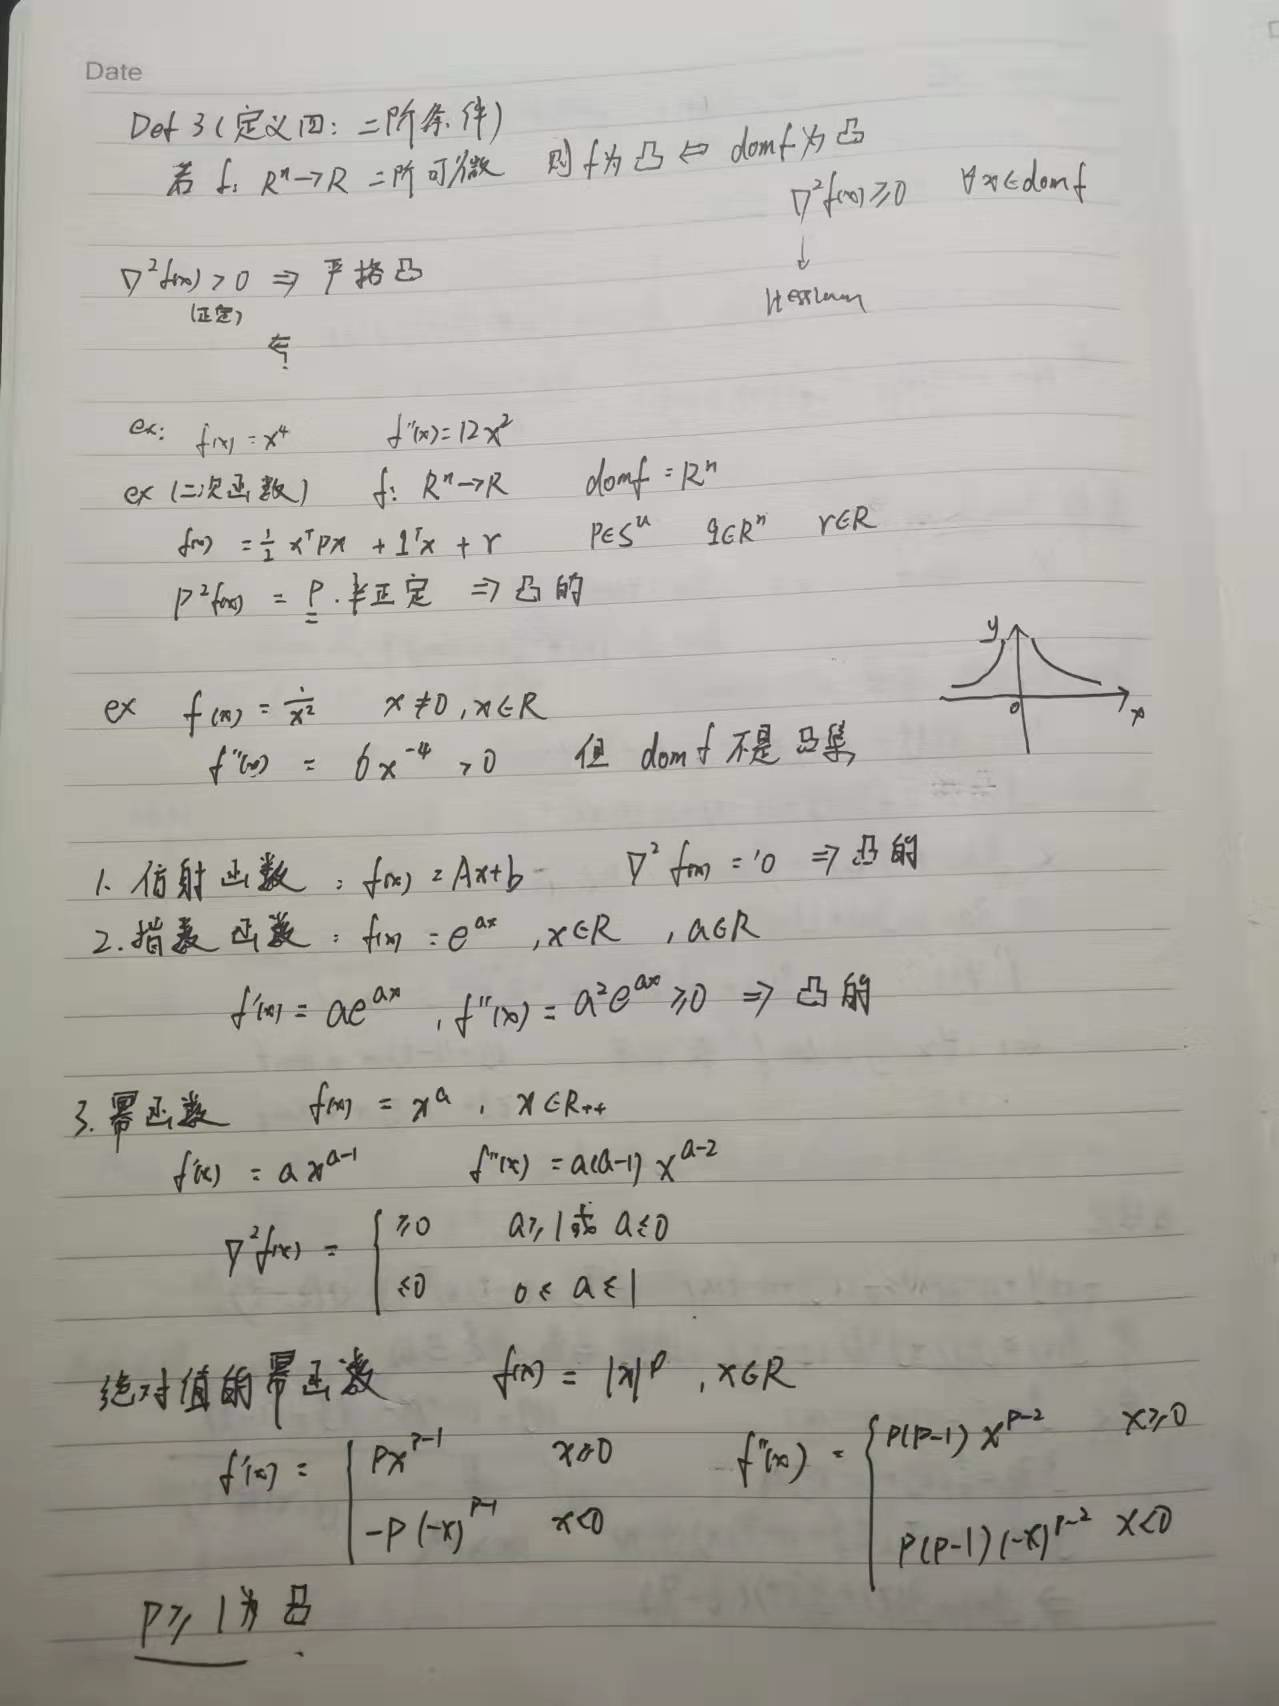 Date
Def 3 (定义四: 二阶条件)
若 f: Rⁿ→R 二阶可微 则f为凸 ⇔ domf为凸
∇²f(x)≥0 ∀x∈domf
↓
Hessian
∇²f(x)>0 ⇒ 严格凸
(正定)
⇐?
ex: f(x)=x⁴ f''(x)=12x²
ex (二次函数) f: Rⁿ→R domf=Rⁿ
f(x) = ½ xᵀPx + qᵀx + r P∈Sⁿ q∈Rⁿ r∈R
∇²f(x) = P. 半正定 ⇒ 凸的
y
0
x
ex f(x) = 1/x² x≠0, x∈R
f''(x) = 6x⁻⁴ >0 但 dom f 不是凸集
1. 仿射函数: f(x)=Ax+b ∇²f(x)=0 ⇒ 凸的
2. 指数函数: f(x)=eᵃˣ, x∈R, a∈R
f'(x)=aeᵃˣ, f''(x)=a²eᵃˣ≥0 ⇒ 凸的
3. 幂函数 f(x)=xᵃ, x∈R₊₊
f'(x)=ax^(a-1) f''(x)=a(a-1)x^(a-2)
∇²f(x) = { ≥0 a≥1或a≤0
≤0 0≤a≤1
绝对值的幂函数 f(x)=|x|^p, x∈R
f'(x) = { px^(p-1) x≥0 f''(x) = { p(p-1)x^(p-2) x≥0
-p(-x)^(p-1) x<0 p(p-1)(-x)^(p-2) x<0
p≥1为凸.